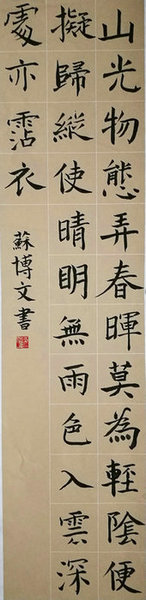 山光物態弄春暉莫為輕陰便
擬歸縱使晴明無雨色入雲深
處亦霑衣
蘇博文書